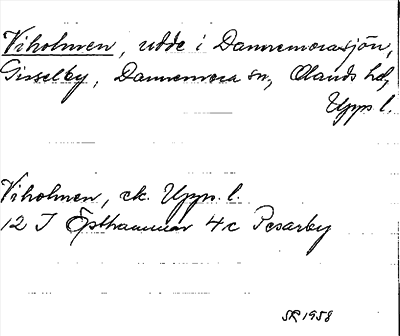 Viholmen, udde i Dannemorasjön,
Gisselby, Dannemora sn, Olands hd,
Upps l.
Viholmen, ek. Upps. l.
12 I Östhammar 4c Pesarby
SR 1958